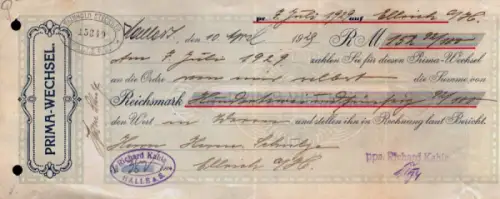 pr. 7. Juli 1929 auf Ellrich a/H.
REINHOLD STECKNER
45240
den 10 April 1929 RM 152 94/100
Am 7. Juli 1929 zahlen Sie für diesen Prima-Wechsel
an die Order von mir selbst die Summe von
Reichsmark Hundertzweiundfünfzig 94/100
den Wert in Waren und stellen ihn in Rechnung laut Bericht.
Herrn Hermann
Ellrich a/H.
PRIMA-WECHSEL.
Richard Kahle
HALLE a. S.
ppa. Richard Kahle